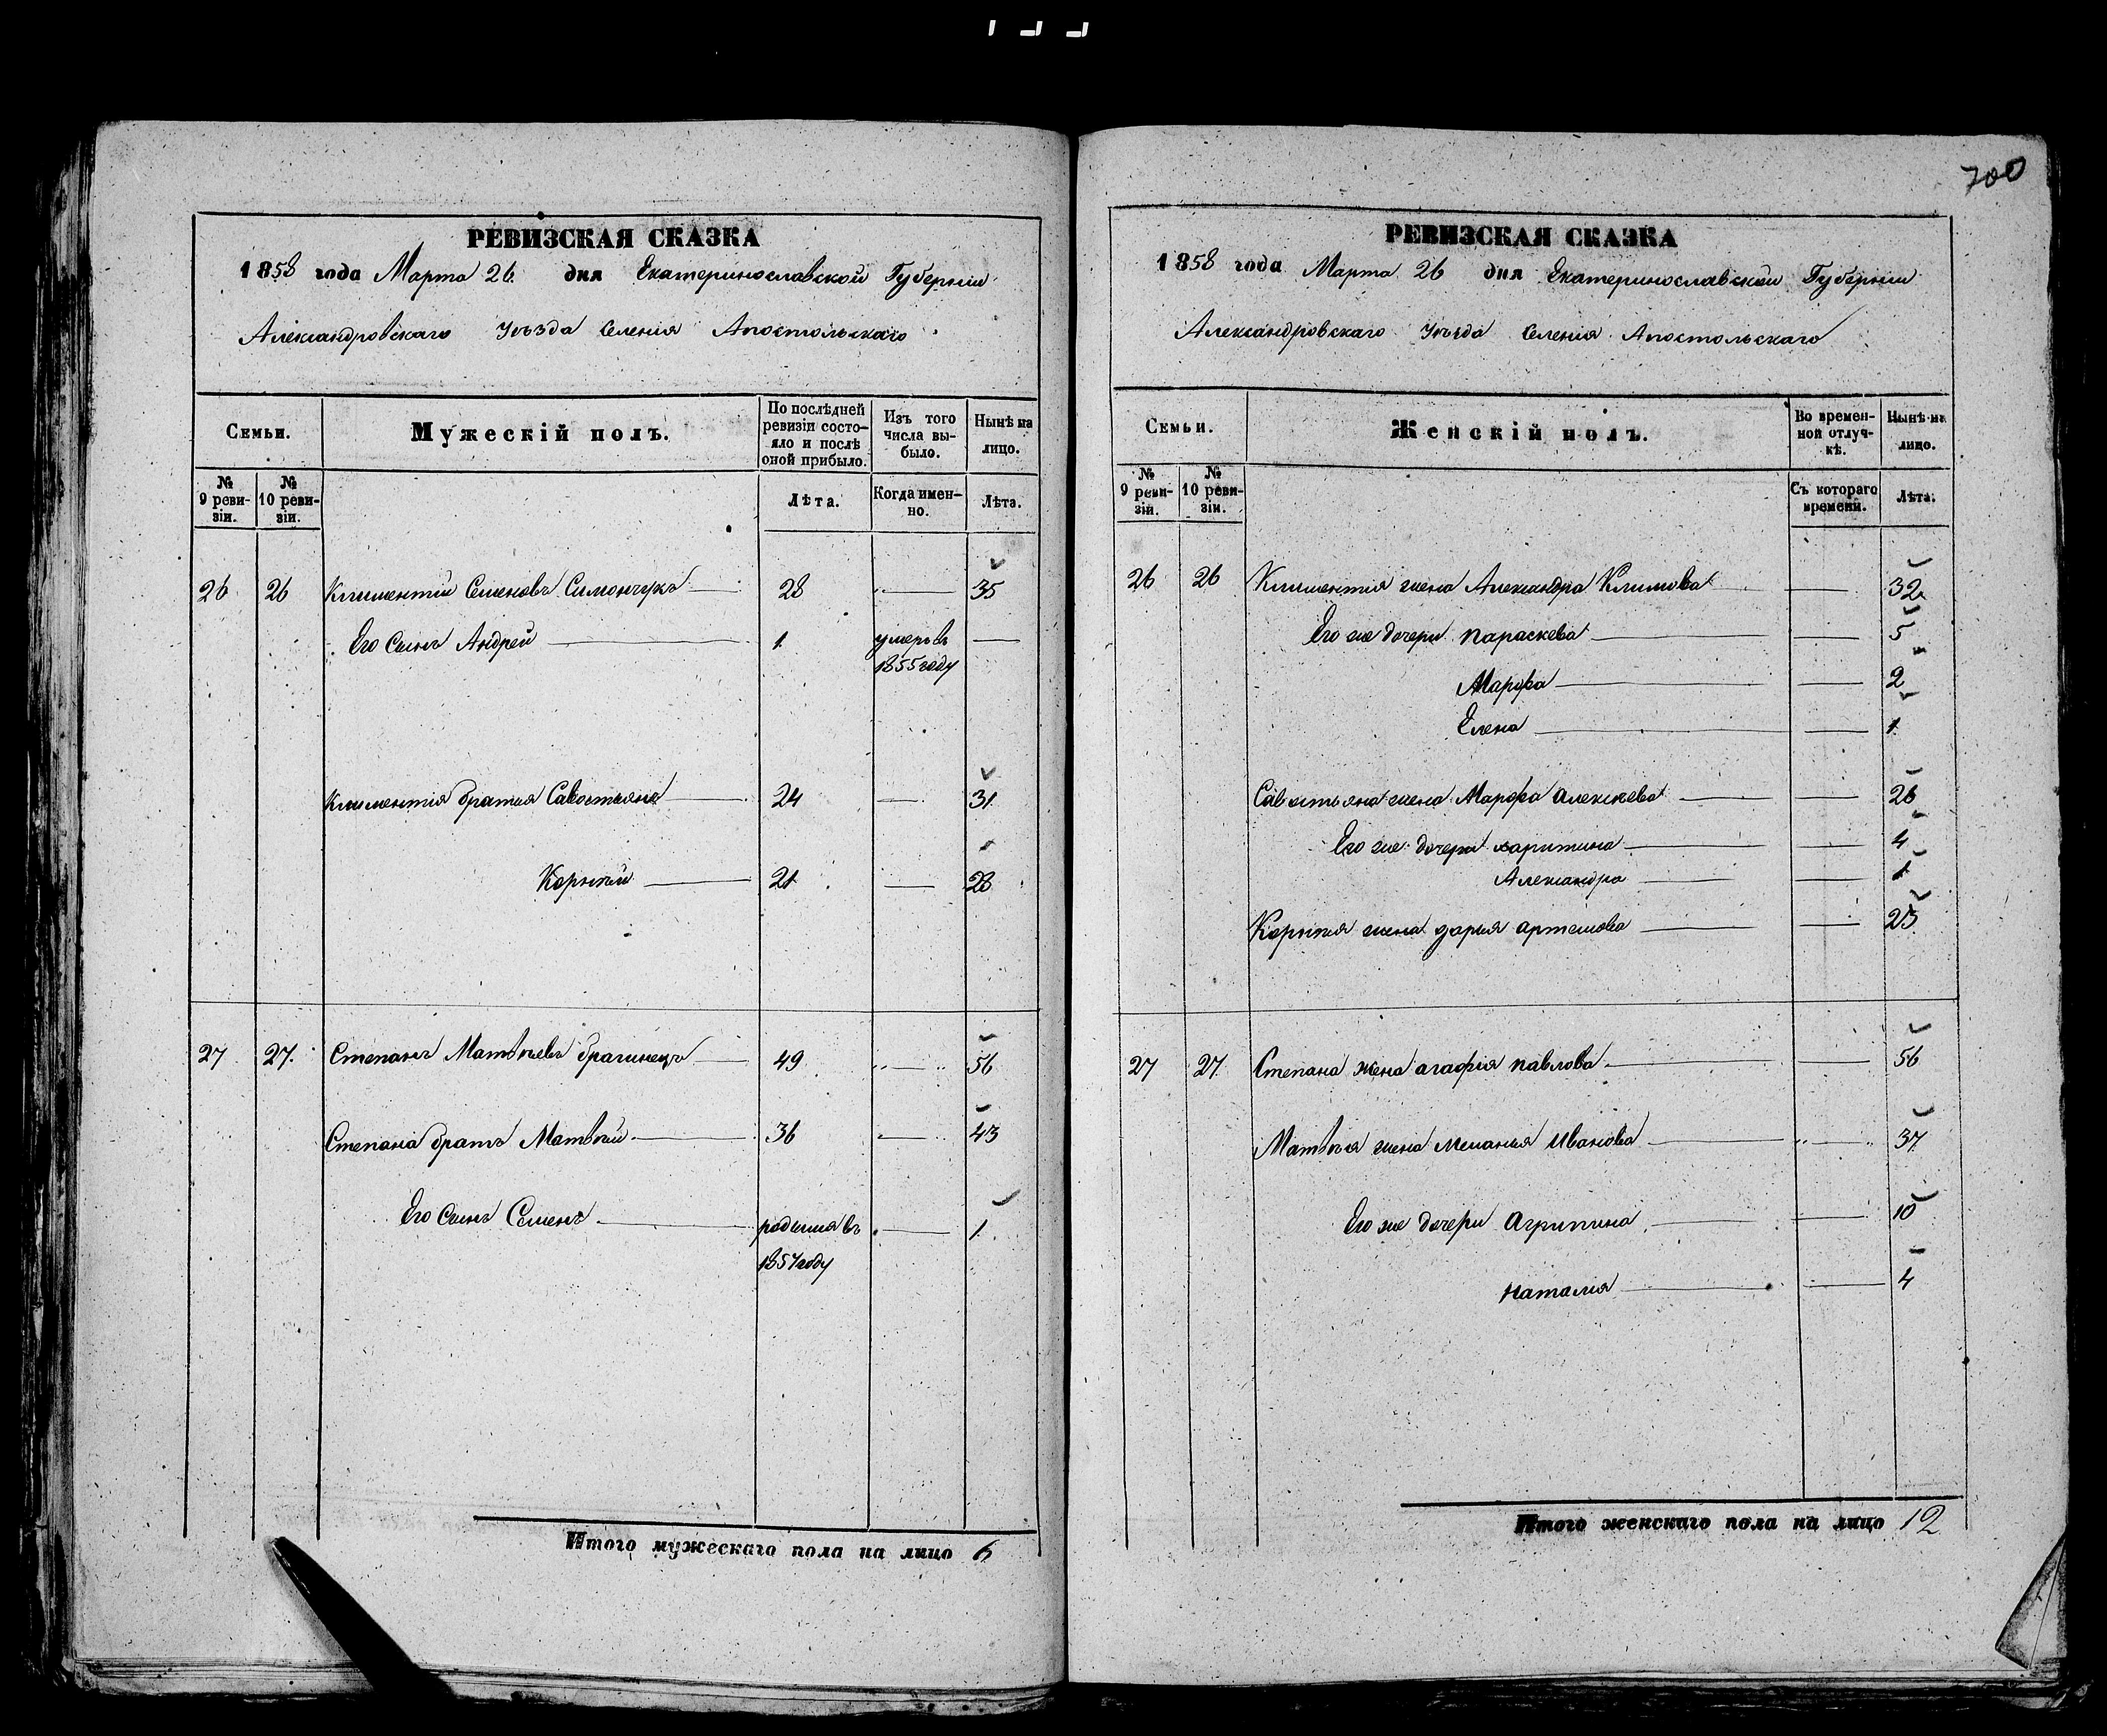 РЕВИЗСКАЯ СКАЗКА
1858 года Марта 26 дня Екатеринославской Губерніи
Александровскаго Уѣзда Селенія Апостольскаго
Семьи.
Мужескій полъ.
По послѣдней ревизіи состояло и послѣ оной прибыло.
Изъ того числа выбыло.
Нынѣ на лицо.
№ 9 ревизіи.
№ 10 ревизіи.
Лѣта.
Когда именно.
Лѣта.
26 26 Климентій Семеновъ Симончукъ 28 35
Его Сынъ Андрей 1 умеръ въ 1855 году
Климентія братья Савостьянъ 24 31
Корнѣй 21 28
27 27 Степанъ Матвѣевъ брагинецъ 49 56
Степана братъ Матвѣй 36 43
Его Сынъ Семенъ родился въ 1857 году 1
Итого мужескаго пола на лицо 6
700
РЕВИЗСКАЯ СКАЗКА
1858 года Марта 26 дня Екатеринославской Губерніи
Александровскаго Уѣзда Селенія Апостольскаго
Семьи.
Женскій полъ.
Во временной отлучкѣ.
Нынѣ на лицо.
№ 9 ревизіи.
№ 10 ревизіи.
Съ котораго времени.
Лѣта.
26 26 Климентія жена Александра Климова 32
Его же дочери параскева 5
Марфа 2
Елена 1
Савостьяна жена Марфа алексѣева 26
Его же дочери харитина 4
Александра 1
Корнѣя жена дарья артемова 25
27 27 Степана жена агафія павлова 56
Матвѣя жена меланья Иванова 37
Его же дочери Агрипина 10
наталія 4
Итого женскаго пола на лицо 12